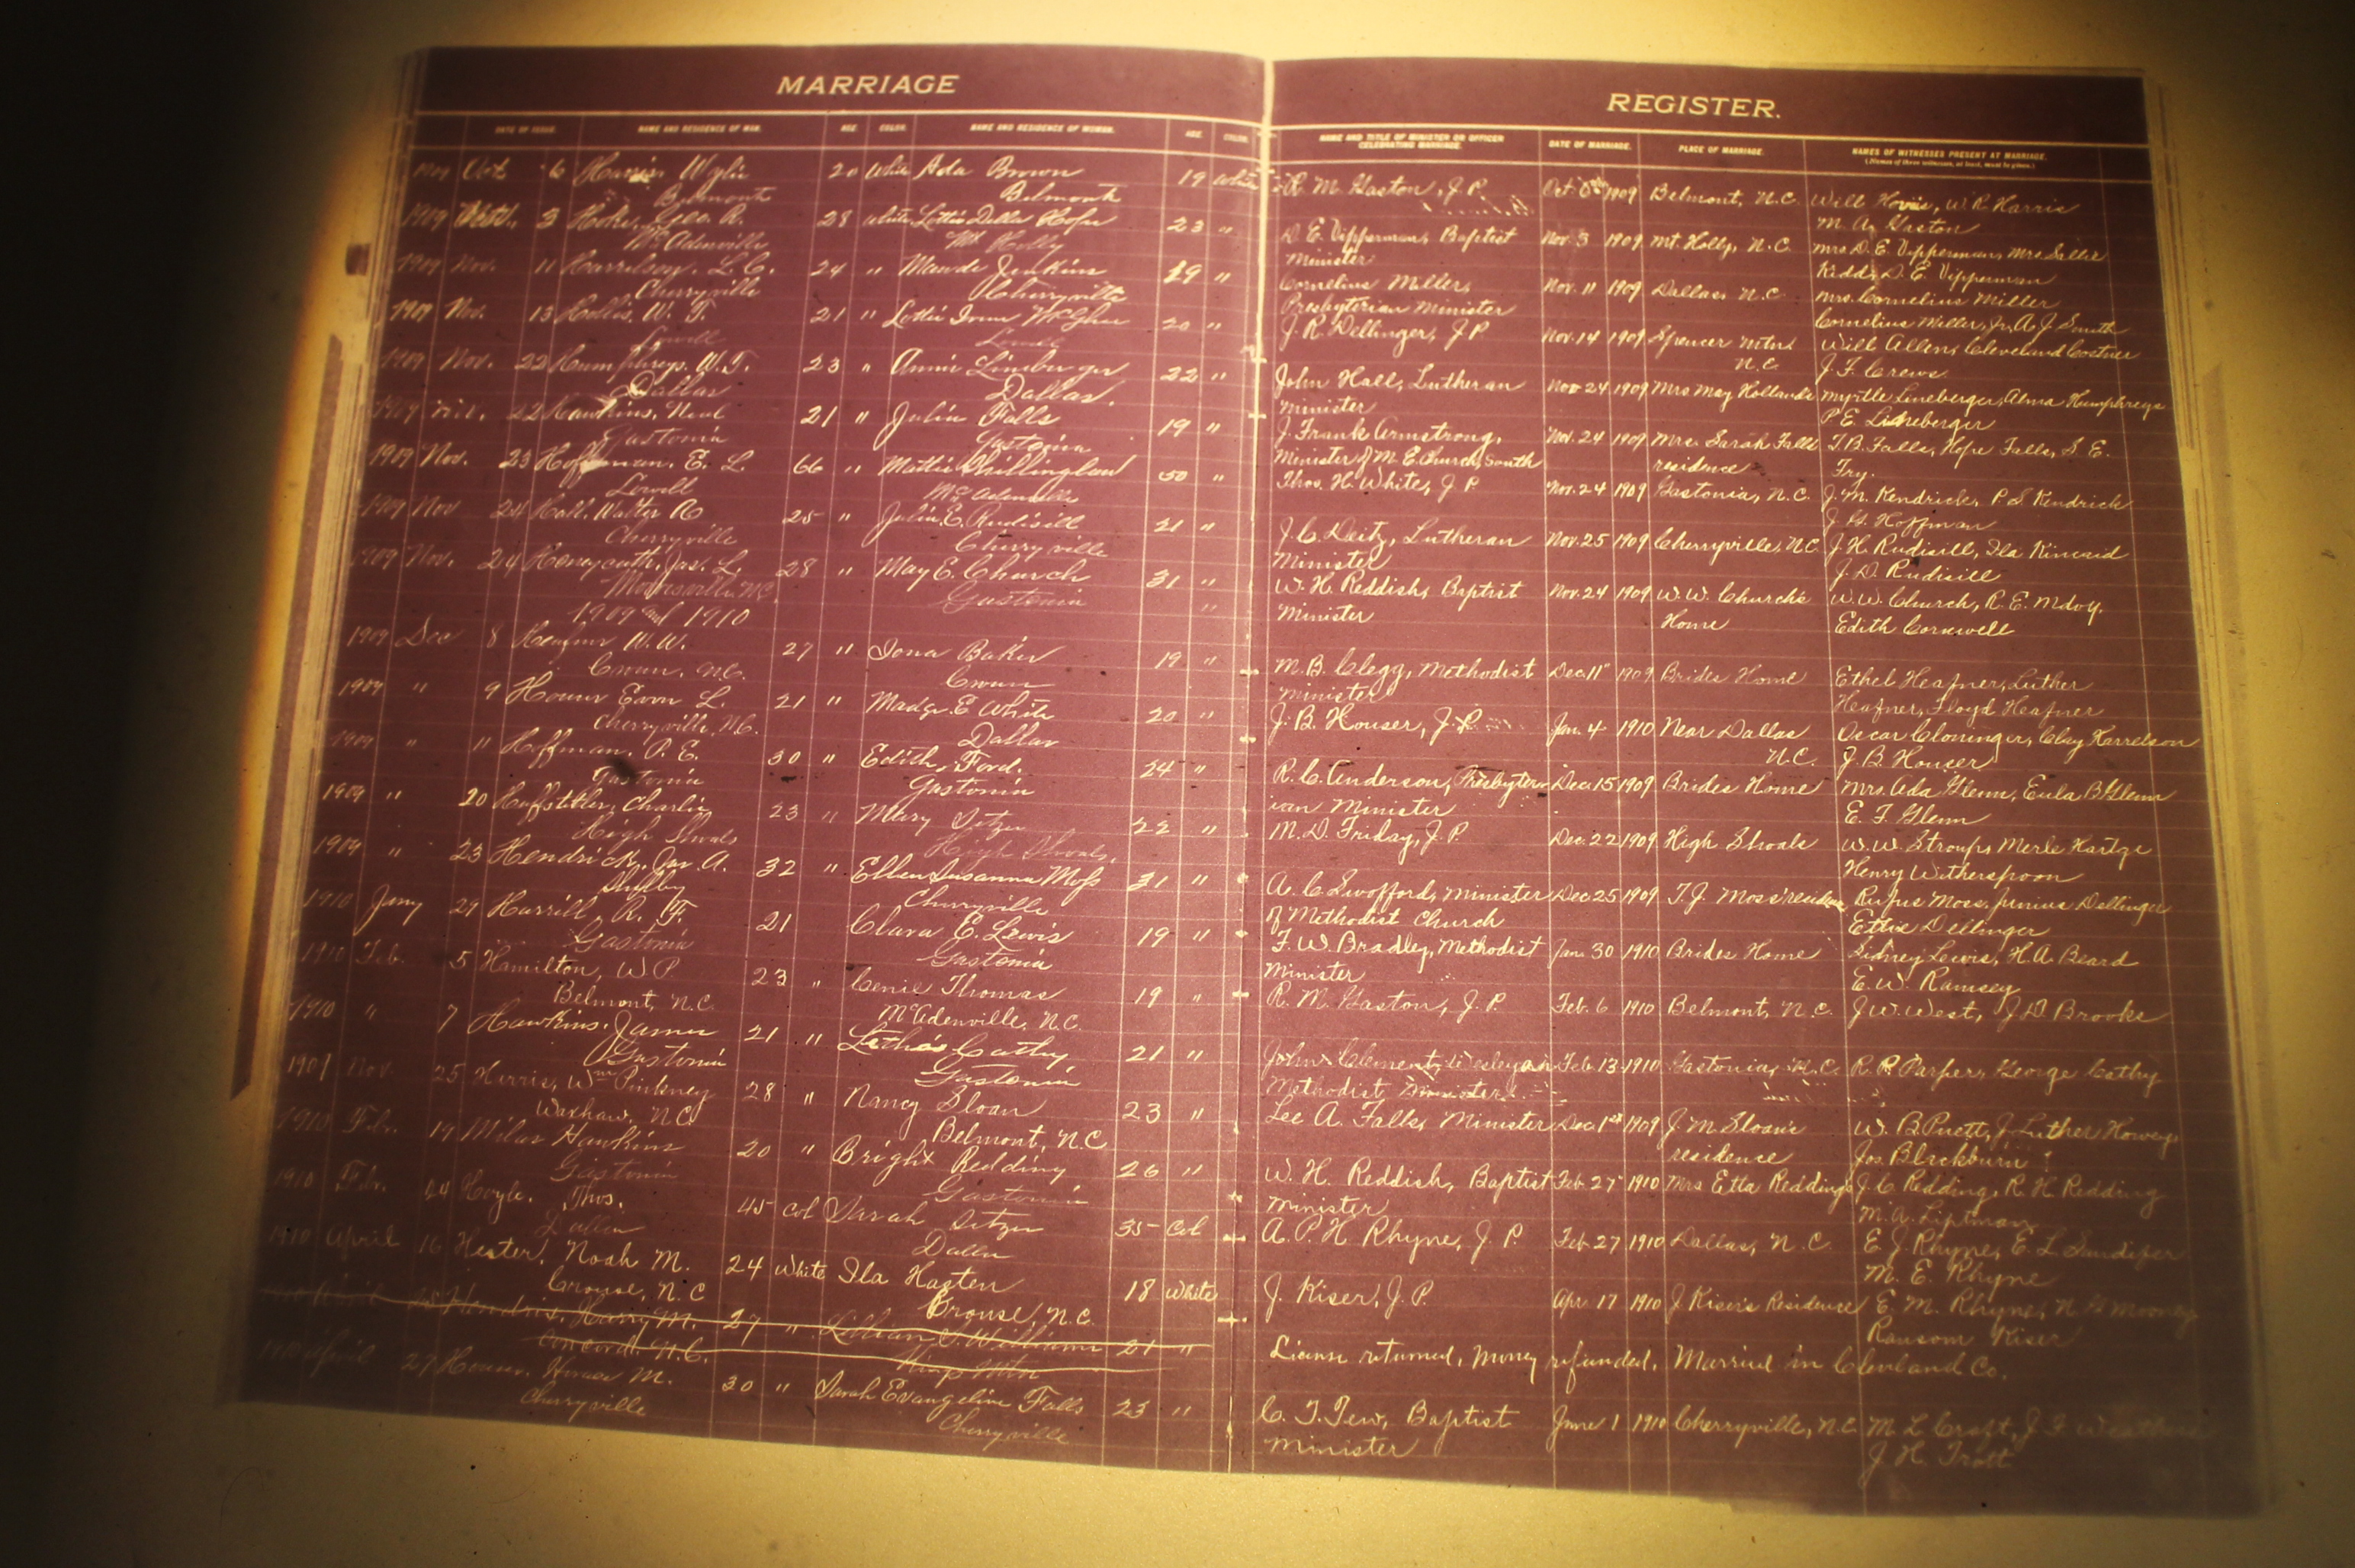 MARRIAGE
REGISTER.
DATE OF ISSUE. NAME AND RESIDENCE OF MAN. AGE. COLOR. NAME AND RESIDENCE OF WOMAN. AGE. COLOR. NAME AND TITLE OF MINISTER OR OFFICER CELEBRATING MARRIAGE. DATE OF MARRIAGE. PLACE OF MARRIAGE. NAMES OF WITNESSES PRESENT AT MARRIAGE.
(Names of three witnesses, at least, must be given.)
1909 Oct 6 Wylie 20 White Ada Brown 19 White R. M. Gaston, J. P. Oct 1909 Belmont, N.C. Will Hovis, W. R. Harris
Belmont Belmont M. A. Gaston
1909 3 Geo. R. 28 White Lottie Della 23 " D. E. Vipperman, Baptist Nov. 3 1909 Mt. Holly, N.C. Mrs D. E. Vipperman, Mrs Sallie
McAdenville Mt Holly Minister Kidd, D. E. Vipperman
1909 Nov. 11 Harrelson, L. C. 24 " Maude Jenkins 19 " Cornelius Miller, Nov. 11 1909 Dallas N.C. Mrs. Cornelius Miller
Cherryville Cherryville Presbyterian Minister Cornelius Miller, Jr, A. J. Smith
1909 Nov. 13 Hollis, W. T. 21 " Lottie 20 " J. R. Dellinger, J P Nov. 14 1909 Spencer Mtn Will Allen, Cleveland Costner
Lowell Lowell N.C. J. F. Crews
1909 Nov. 22 Humphreys, W. T. 23 " Annie Lineberger 22 " John Hall, Lutheran Nov 24 1909 Mrs May Hollands Myrtle Lineberger, Alma Humphreys
Dallas Dallas. Minister P. E. Lineberger
1909 22 Hawkins, Neal 21 " Julia Falls 19 " J. Frank Armstrong, Nov. 24 1909 Mrs. Sarah Falls T. B. Falls, Hope Falls, S. E.
Gastonia Gastonia Minister of M. E. Church, South residence Fry.
1909 Nov. 23 Hoffman, E. L. 66 " Mattie 50 " Thos. H. White, J P. Nov. 24 1909 Gastonia, N.C. J. M. Kendrick, P S Kendrick
Lowell McAdenville J. H. Hoffman
1909 Nov 24 Hall, Walter 25 " Julia E. Rudisill 21 " J. C. Deitz, Lutheran Nov. 25 1909 Cherryville, N.C. J. H. Rudisill, Ila Kincaid
Cherryville Cherryville Minister J. D. Rudisill
1909 Nov. 24 Honeycutt, Jas. L. 28 " May E. Church 31 " W. H. Reddish, Baptist Nov. 24 1909 W. W. Church's W. W. Church, R. E.
Mooresville, N.C. Gastonia " Minister Home Edith Cornwell
1909 and 1910
1909 Dec 8 W. W. 27 " Iona Baker 19 " M. B. Clegg, Methodist Dec. 11" 1909 Brides Home Ethel Heafner, Luther
N.C. Minister Heafner, Floyd Heafner
1909 " 9 L. 21 " Madge E White 20 " J. B. Houser, J. P. Jan. 4 1910 Near Dallas Oscar Cloninger, Clay Harrelson
Cherryville, N.C. Dallas N.C. J. B. Houser
1909 " 11 Hoffman, P. E. 30 " Edith Ford. 24 " R. C. Anderson, Presbyter- Dec 15 1909 Brides Home Mrs. Ada Glenn, Eula B. Glenn
Gastonia Gastonia ian Minister E. F. Glenn
1909 " 20 Huffstetler, Charlie 23 " Mary Sitzer 22 " M. D. Friday, J. P. Dec. 22 1909 High Shoals W. W. Stroup, Merle
High Shoals High Shoals. Henry Witherspoon
1909 " 23 Hendrick, Jas. A. 32 " Ellen Susanna Moss 31 " A. C. Swofford, Minister Dec 25 1909 T. J. Moss' Rufus Moss, Junius Dellinger
Shelby Cherryville of Methodist Church Ettie Dellinger
1910 Jany 29 Harrill, R. F. 21 Clara E. Lewis 19 " F. W. Bradley, Methodist Jan. 30 1910 Brides Home Sidney Lewis, H. A. Beard
Gastonia Gastonia Minister E. W. Ramsey
1910 Feb. 5 Hamilton, W P 23 " Cenie Thomas 19 " R. M. Gaston, J. P. Feb. 6 1910 Belmont, N.C. J W. West, J. D. Brooks
Belmont, N.C. McAdenville, N.C.
1910 " 7 Hawkins, James 21 " Cathy 21 " John Clement, Wesleyan Feb. 13 1910 Gastonia, N.C. R. R. George Cathy
Gastonia Gastonia Methodist Minister
1909 Nov. 25 Harris, Wm Pinkney 28 " Nancy Sloan 23 " Lee A. Falls, Minister Dec 1st 1909 J. M Sloan's W. B Puett, J. Luther Howey
Waxhaw, N.C Belmont, N.C residence Jos. Blackburn
1910 Feb. 19 Milas Hawkins 20 " Bright Redding 26 " W. H. Reddish, Baptist Feb. 27 1910 Mrs Etta Reddings J. C. Redding, R. H. Redding
Gastonia Gastonia Minister M. A. Liptman
1910 Feb. 24 Hoyle, Thos. 45 Col Sarah Sitzer 35 Col A. P. H. Rhyne, J. P. Feb. 27 1910 Dallas, N.C. E. J. Rhyne, E. L.
Dallas Dallas M. E. Rhyne
1910 April 16 Hester, Noah M. 24 White Ila Hasten 18 White J. Kiser, J. P. Apr. 17 1910 J Kiser's Residence E. M. Rhyne, Mooney
Crouse, N.C Crouse, N.C. Ransom Kiser
Hendrix, Harry M. 27 " Lillian Williams 21 " License returned, money refunded. Married in Cleveland Co.
Concord, N.C. Kings Mtn
1910 April 27 Houser, M. 30 " Sarah Evangeline Falls 23 " C. T. Tew, Baptist June 1 1910 Cherryville, N.C M L Craft,
Cherryville Cherryville Minister J. H. Trott